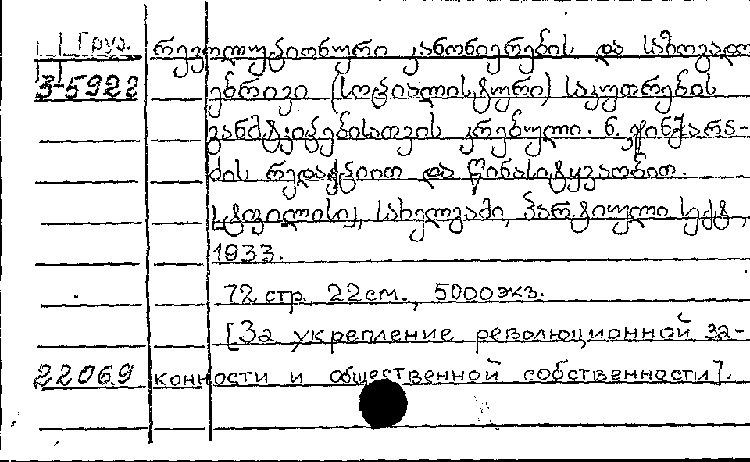 Груз. რევოლუციონური კანონიერების და საზოგადო
3-5922 ებრივი (სოციალისტური) საკუთრების
განმტკიცებისათვის კრებული. ნ. ქინქარა-
ძის რედაქციით და წინასიტყვაობით.
[ტფილისი], სახელგამი, პარტიული სექტ.,
1933.
72 стр. 22см., 5000экз.
[За укрепление революционной за-
22069 конности и общественной собственности].